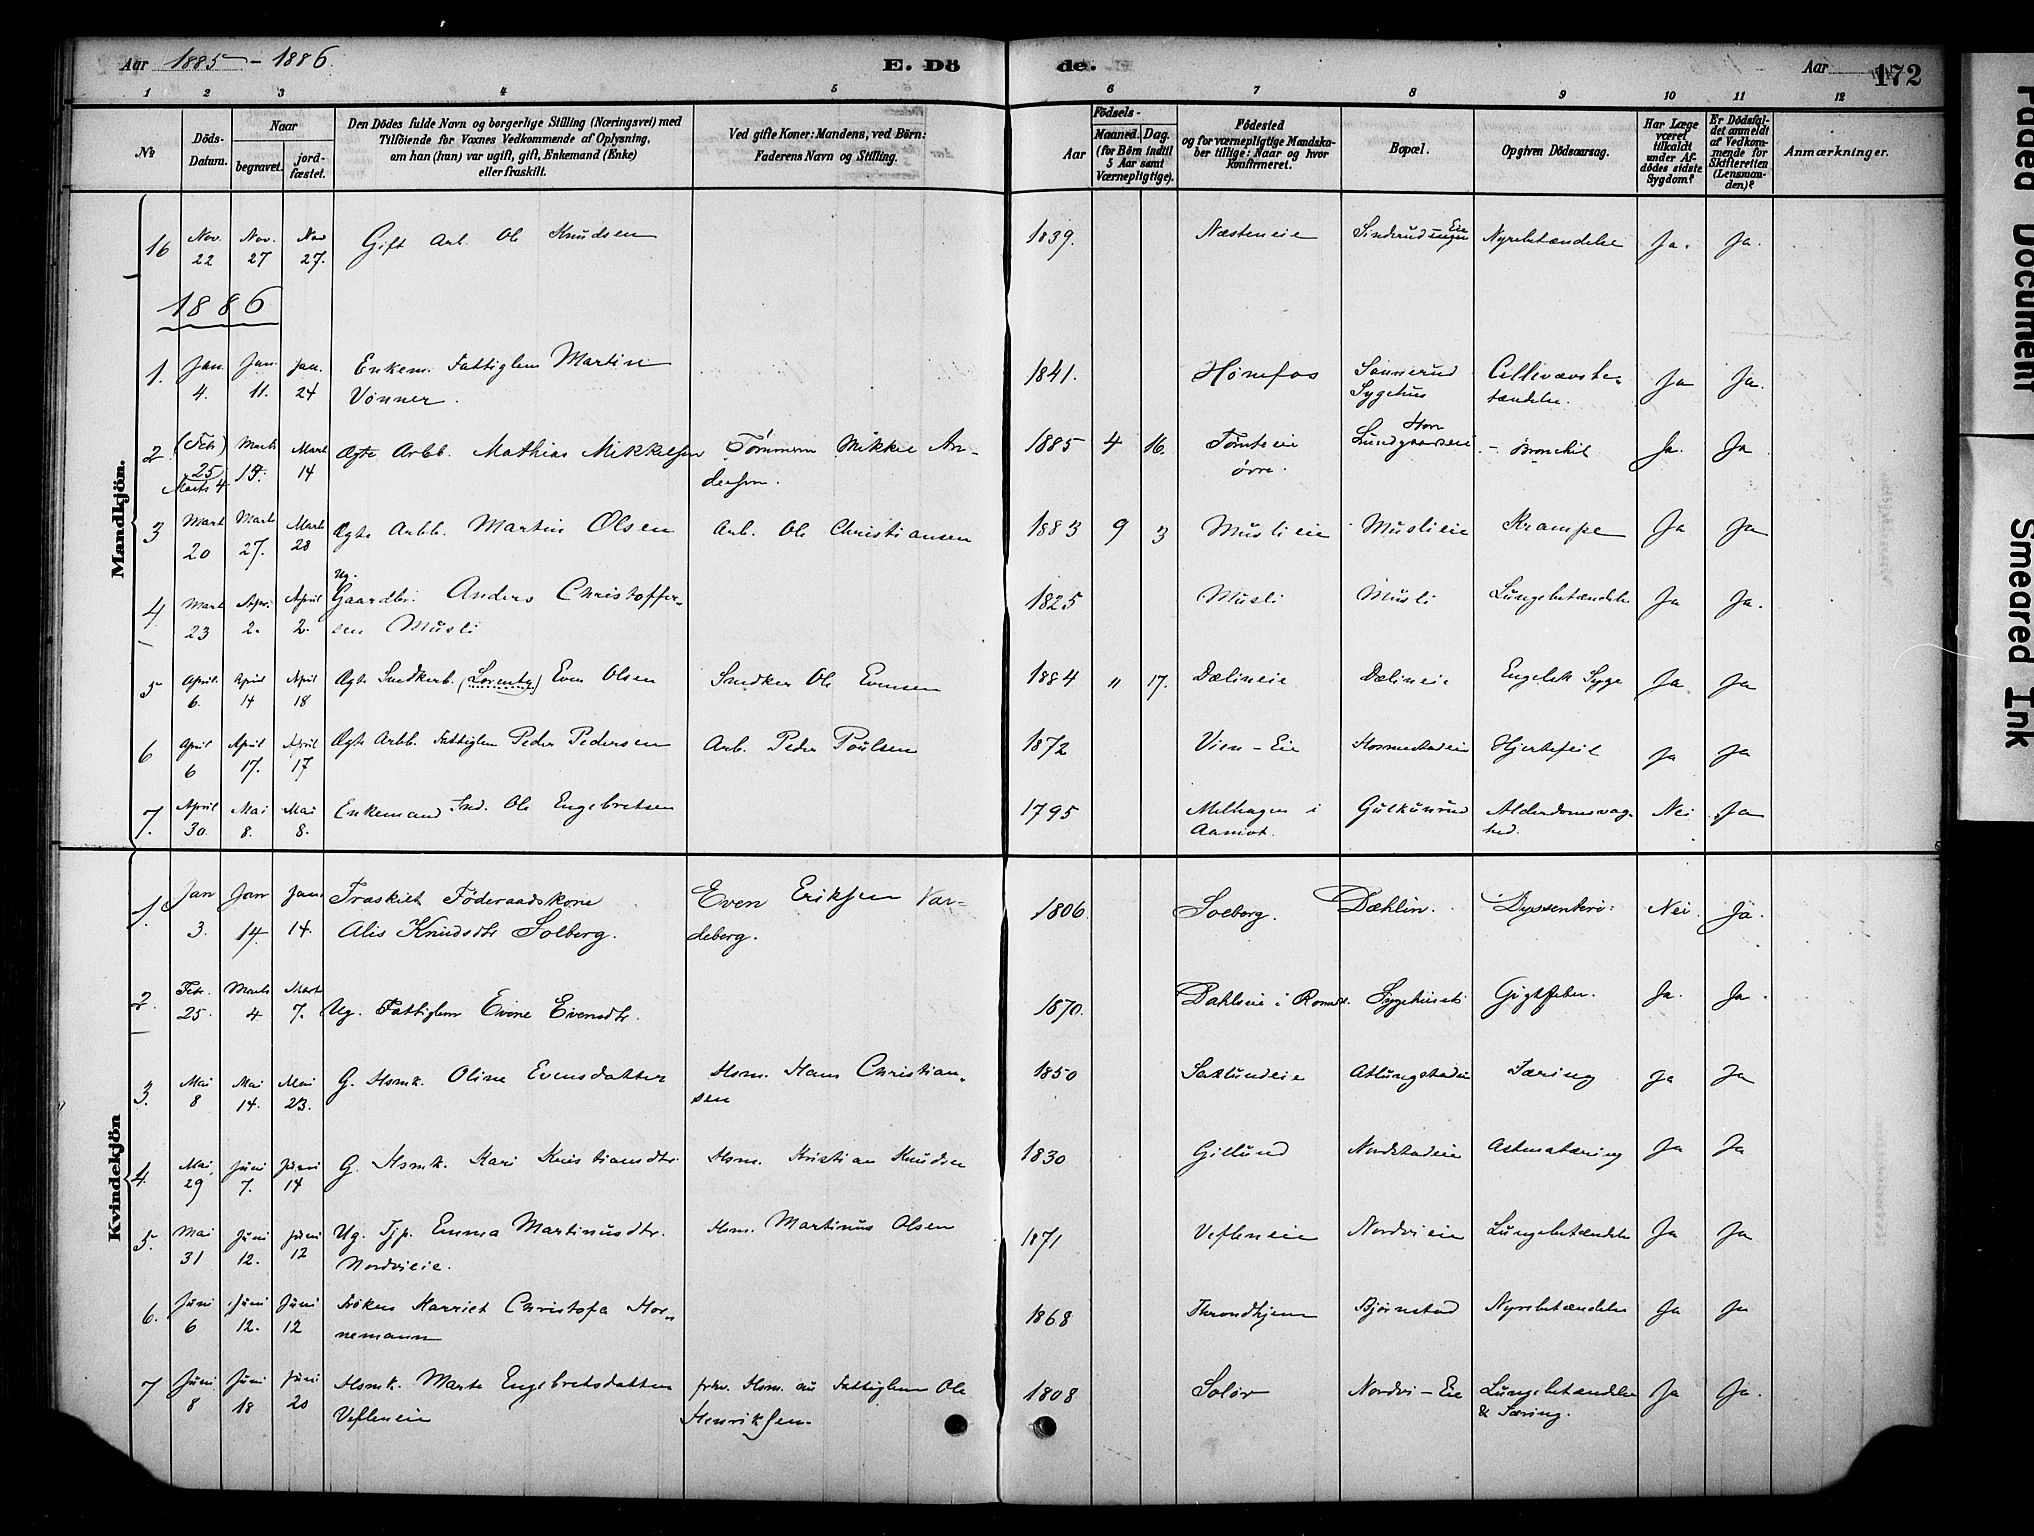 Aar 1885 - 1886 E. Dö de. Aar 172
1 2 3 4 5 6 7 8 9 10 11 12
№ Döds-Datum. Naar begravet. jord-fæstet. Den Dödes fulde Navn og borgerlige Stilling (Næringsvei) med Tilföiende for Voxnes Vedkommende af Oplysning, om han (hun) var ugift, gift, Enkemand (Enke) eller fraskilt. Ved gifte Koner: Mandens, ved Börn: Faderens Navn og Stilling. Födsels- Aar Maaned. Dag. (for Börn indtil 5 Aar samt Værnepligtige). Födested og for værnepligtige Mandskaber tillige: Naar og hvor konfirmeret. Bopæl. Opgiven Dödsaarsag. Har Læge været tilkaldt under Afdödes sidste Sygdom? Er Dödsfaldet anmeldt af Vedkommende for Skifteretten (Lensmanden)? Anmærkninger.
Mandkjön.
16 Nov. 22 Nov. 27 Nov 27. Gift Arb. Ole Knudsen 1839. Næsteneie Sinderudengen Eie Nyrebetændelse Ja. Ja.
1886
1. Jan. 4. Jan. 11. Jan. 24 Enkem. Fattiglem Martin 1841. Hønefos Sannerud Cellevævsbe-
Vonner. Sygehus tændelse. Ja Ja.
2. (Feb) 25 Marts 4 Marts 14. Mart 14 Ægte Arbb. Mathias Mikkelsen Tømmerm Mikkel An- 1885 4 16. Tomteie Horn Lundgaardseie Bronchit Ja. Ja
dersen. øvre.
3 Mart 20 Mart 27. Mart 28 Ægte Arbb. Martin Olsen Arb. Ole Christiansen 1883 9 3 Muslieie Muslieie Krampe Ja Ja
4 Mart 23 April 2. April 2. Ug. Gaardbr. Anders Christoffer- 1825 Musli Musli Lungebetændelse Ja Ja.
sen Musli
5 April 6. April 14 April 18 Ægte Snedkerb. (Lorentz) Even Olsen Snedker Ole Evensen 1884 " 17. Dælineie Dælineie Engelsk Syge Ja Ja
6 April 6 April 17. April 17 Ægte Arbb. Fattiglem Peder Pedersen Arb. Peder Poulsen 1872 Vien-Eie Hosmestadeie Hjertefeil Ja Ja
7. April 30. Mai 8. Mai 8. Enkemand Ind. Ole Engebretsen 1795 Melhagen i Gulkunrud Alderdomsvag- Nei Ja
Aamot. hed.
Kvindekjön
1. Jan 3. Jan 14. Jan 14. Fraskilt Föderaadskone Even Eriksen Var- 1806. Soeborg. Dæhlin. Dyssenteri Nei Ja.
Alis Knudsdtr Solberg. deberg.
2. Febr. 25. Marts 4 Mart 7. Ug. Fattiglem Evine Evensdtr. 1870. Dahlseie i Romed. Sygehuset Gigtfeber. Ja. Ja.
3. Mai 8 Mai 14. Mai 23. G. Hsmk. Oline Evensdatter Hsm. Hans Christian- 1850 Saxlundeie Atlungstadeie Tæring Ja Ja
sen
4. Mai 29 Juni 7. Juni 14 G. Hsmk. Kari Kristiansdtr. Hsm. Kristian Knudsen 1830 Gillund Nordstadeie Astmatæring Ja Ja
5. Mai 31 Juni 12. Juni 12 Ug. Tjp. Emma Martinusdtr. Hsm. Martinus Olsen 1871 Vefleneie Nordvieie Lungebetændelse Ja Ja
Nordvieie.
6. Juni 6 Juni 12. Juni 12 Frøken Harriet Christofa Hor- 1868 Throndhjem Bjørnstad Nyrebetændelse Ja Ja
nemann
7 Juni 8 Juni 18 Juni 20 Hsmk. Marte Engebretsdatter frhv. Hsm. nu Fattiglem Ole 1808 Solør Nordvi-Eie Lungebetændelse Ja Ja.
Vefleneie Henriksen & Tæring.
Faded Document
Smeared Ink